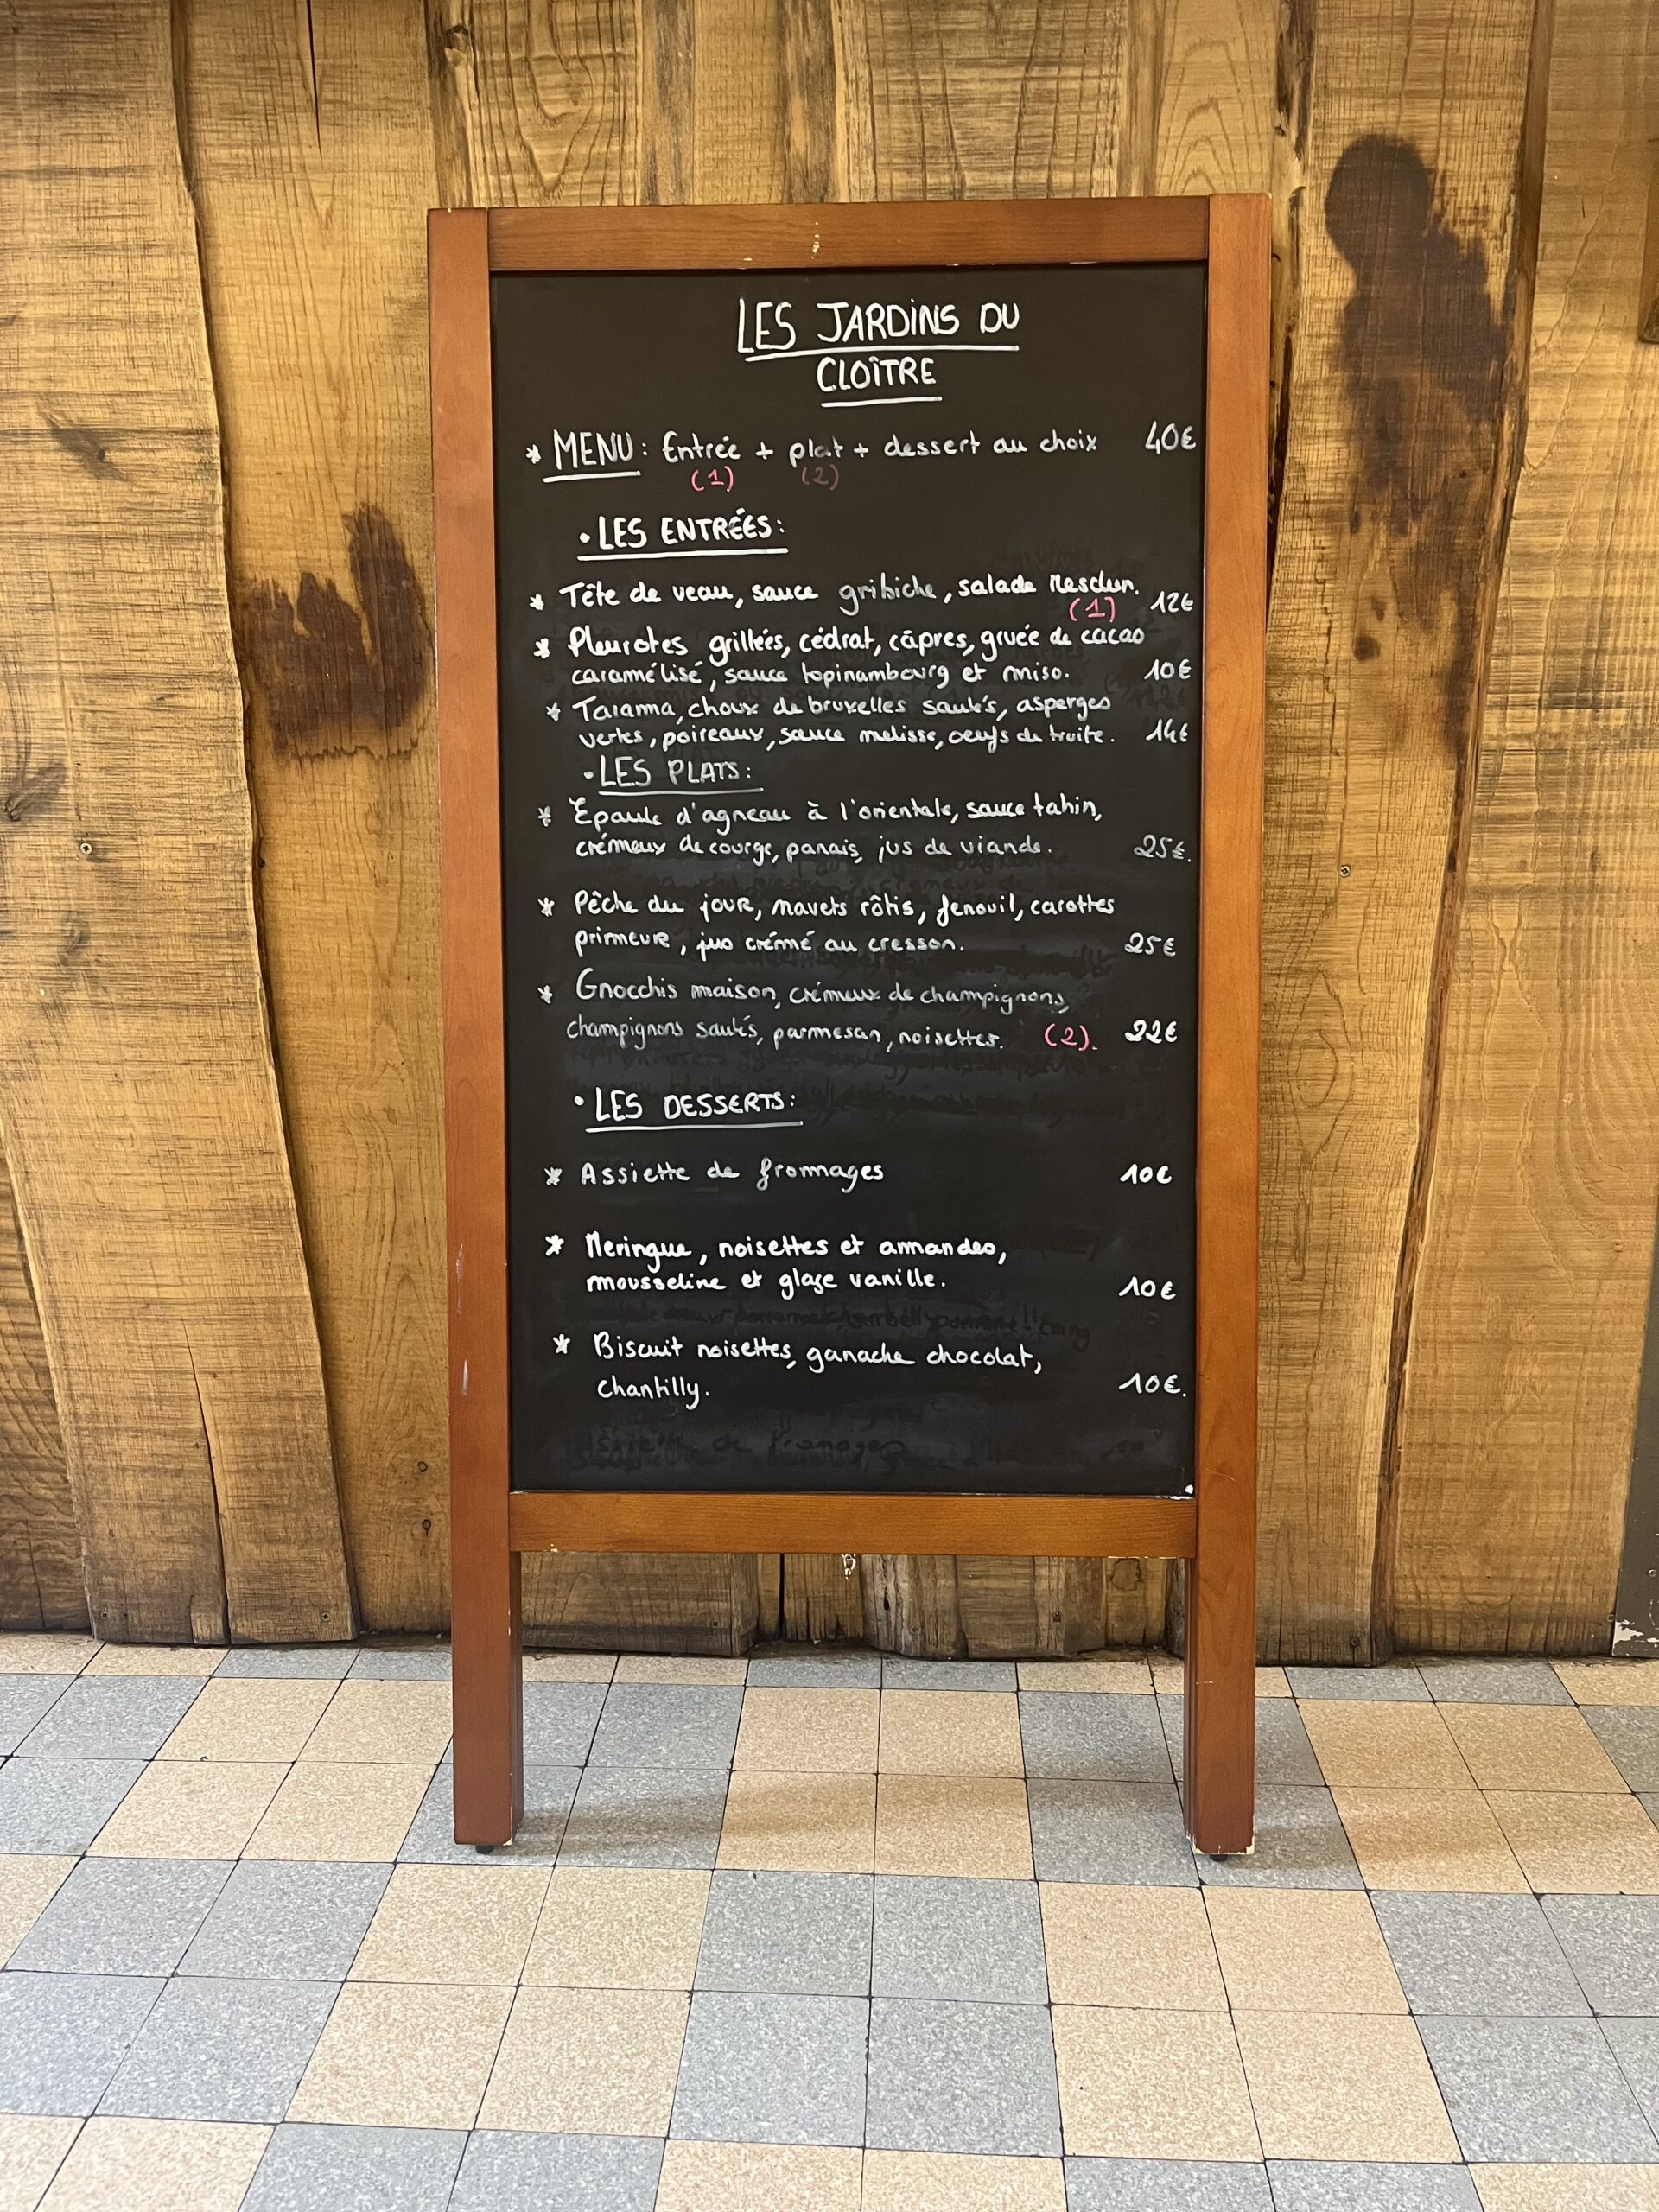 LES JARDINS DU
CLOÎTRE
* MENU : Entrée + plat + dessert au choix 40€
(1) (2)
• LES ENTRÉES :
* Tête de veau, sauce gribiche, salade Mesclun. 12€
(1)
* Pleurotes grillées, cédrat, câpres, gruée de cacao
caramélisé, sauce topinambourg et miso. 10€
* Tarama, choux de bruxelles sautés, asperges
vertes, poireaux, sauce melisse, oeufs de truite. 14€
• LES PLATS :
* Epaule d'agneau à l'orientale, sauce tahin,
crémeux de courge, panais, jus de viande. 25€.
* Pêche du jour, navets rôtis, fenouil, carottes
primeure, jus crémé au cresson. 25€
* Gnocchis maison, crémeux de champignons,
champignons sautés, parmesan, noisettes. (2). 22€
• LES DESSERTS :
* Assiette de fromages 10€
* Meringue, noisettes et amandes,
mousseline et glaçe vanille. 10€
* Biscuit noisettes, ganache chocolat,
chantilly. 10€.